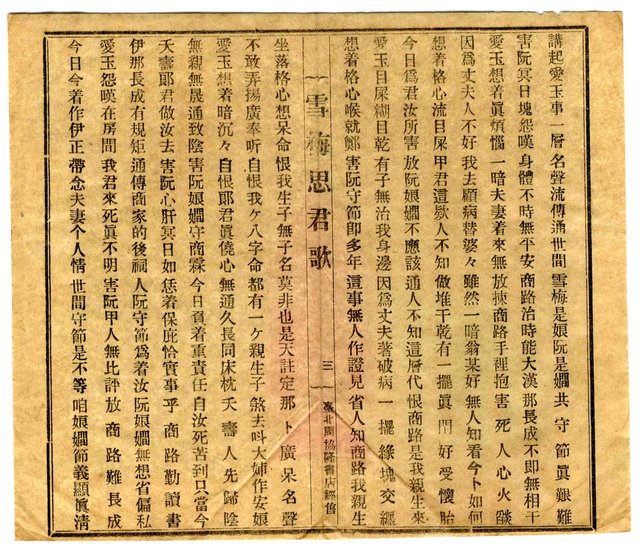 講起愛玉事一層 名聲流傳通世間 雪梅是娘阮是嫺 共守節眞艱難
害阮冥日塊怨嘆 身體不時無平安 商路治時能大漢 那長成不即無相干
愛玉想着眞煩惱 一暗夫妻着來無 放捒商路手裡抱 害死人心火燄
因爲丈夫人不好 我去顧病替婆々 雖然一暗翁某好 無人知看今卜如何
想着格心流目屎 甲君這欵人不知 做堆干乾有一擺 眞門好受懷胎
今日爲君汝所害 放阮娘嫺不應該 通人不知這層代 恨商路是我親生來
愛玉目屎糊目乾 有子無治我身邊 因爲丈夫著破病 一擺緣塊交纏
想着格心喉就鄭 害阮守節卽多年 這事無人作證見 省人知商路我親生
一雪梅思君歌 三 臺北周協隆書店經售
坐落格心想呆命 恨我生子無子名 莫非也是天註定 那卜廣呆名聲
不敢弄揚廣奉听 自恨我ケ八字命 都有一ケ親生子 煞去叫大姉作安娘
愛玉想着暗沉々 自恨郎君眞僥心 無通久長同床枕 夭壽人先歸陰
無親無晟通致陰 害阮娘嫺守商霖 今日負着重責任 自汝死苦到只當今
夭壽郎君做汝去 害阮心肝冥日如 恁着保庇恰實事 乎商路勤讀書
伊那長成有規矩 通傳商家的後祠 人阮守節爲着汝 阮娘嫺無想省偏私
愛玉怨嘆在房間 我君來死眞不明 害阮甲人無比評 放商路難長成
今日今着作伊正 帶念夫妻个人情 世間守節是不等 咱娘嫺節義顯眞清